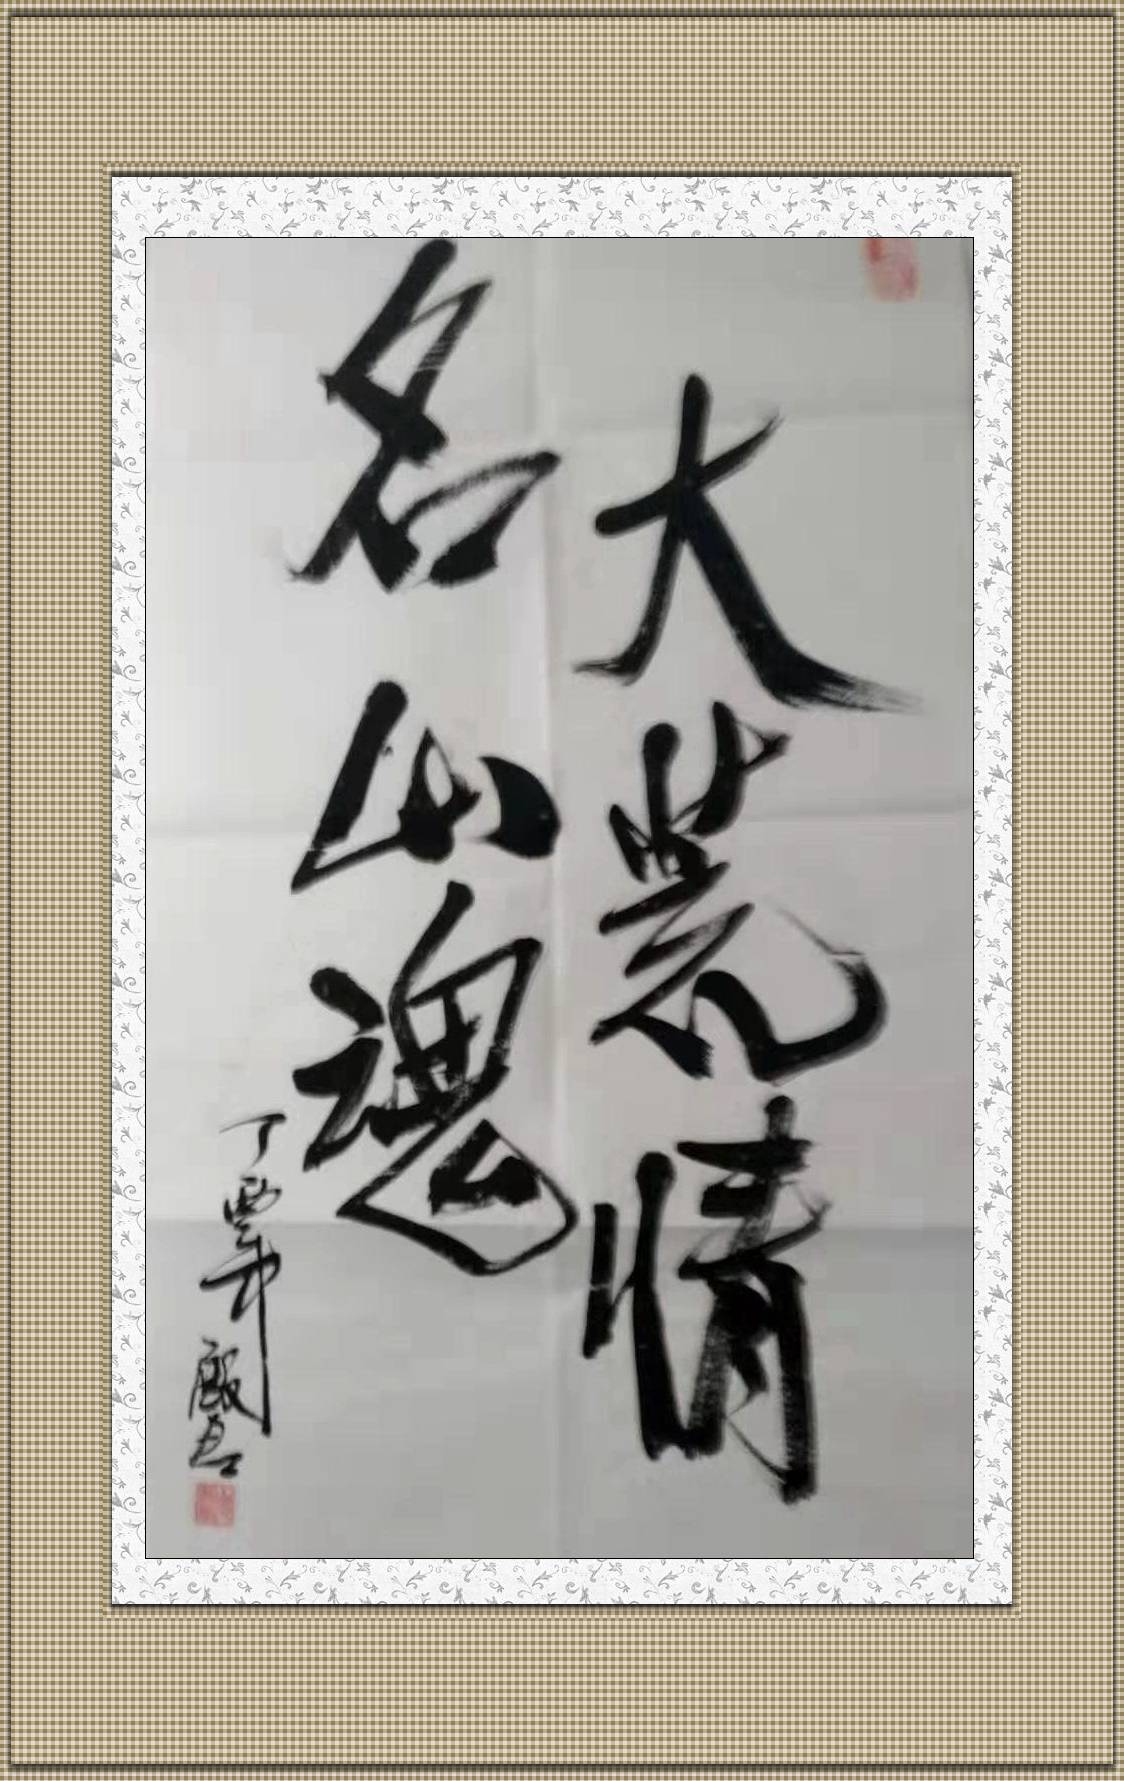 大荒情
名山魂
丁酉年